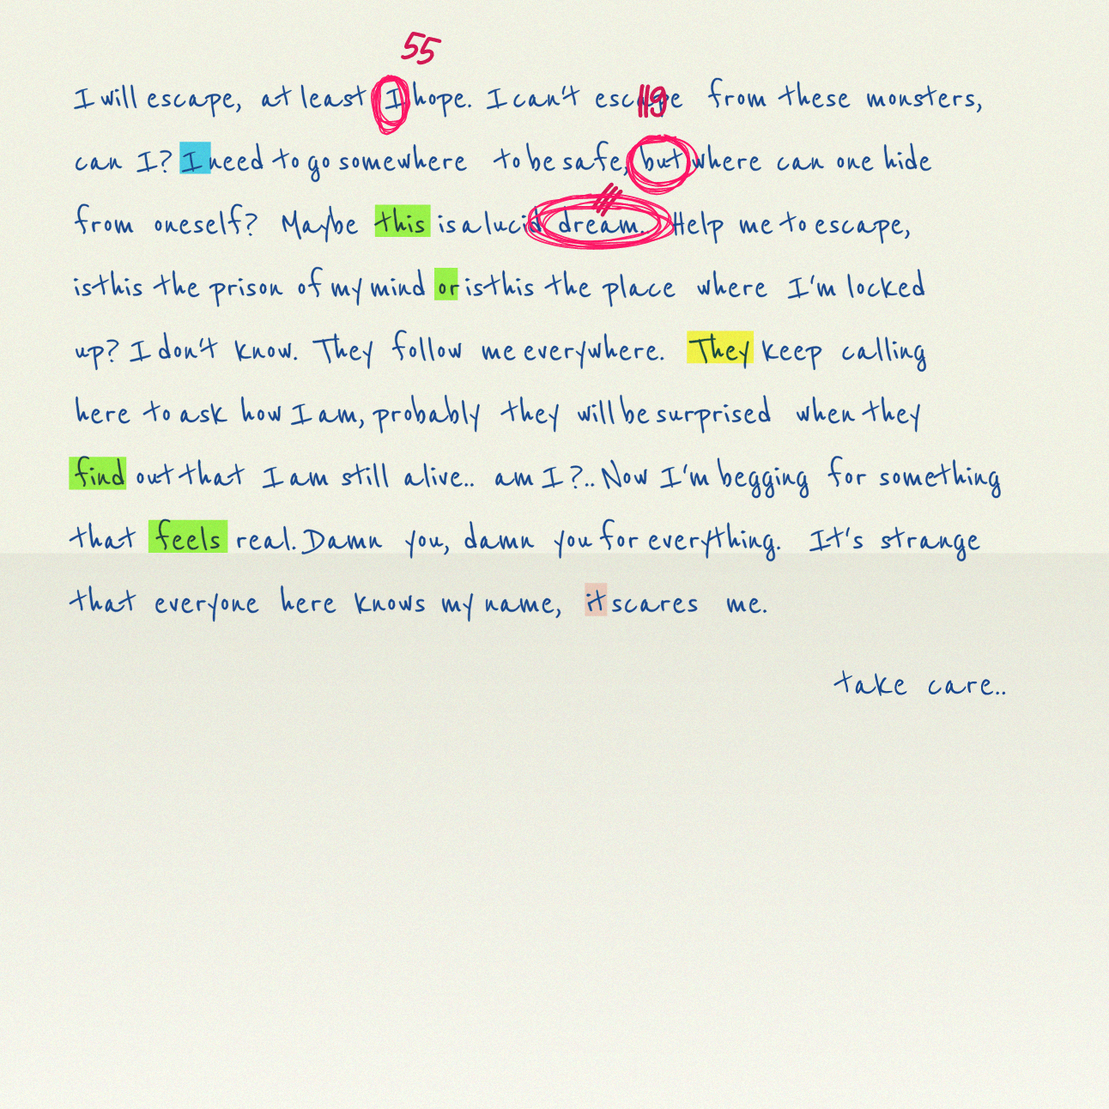 55
I will escape, at least I hope. I can't escape from these monsters,
119
can I? I need to go somewhere to be safe, but where can one hide
from oneself? Maybe this is a lucid dream.. Help me to escape,
isthis the prison of my mind or isthis the place where I'm locked
up? I don't know. They follow me everywhere. They keep calling
here to ask how I am, probably they will be surprised when they
find out that I am still alive.. am I?.. Now I'm begging for something
that feels real. Damn you, damn you for everything. It's strange
that everyone here knows my name, it scares me.
take care..